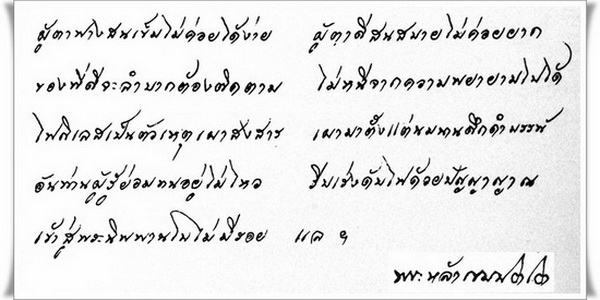 ผู้ตาฟางสนเข็มไม่ค่อยได้ง่าย ผู้ตาดีสนสบายไม่ค่อยยาก
ของที่ดีจะลำบากต้องติดตาม ไม่หนีจากความพยายามไปได้
ไฟกิเลสเป็นตัวเหตุเผาสงสาร เผามาตั้งแต่นมนานดึกดำบรรพ์
อันท่านผู้รู้ย่อมทนอยู่ไม่ไหว รีบเร่งดับไฟด้วยปัญญาญาณ
เข้าสู่พระนิพพานไปไม่มีรอย แล ฯ
พระ หล้า